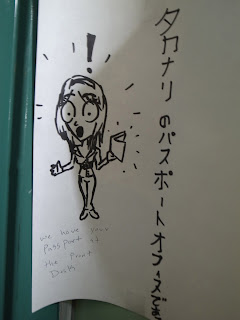 !
タカナリ のパスポートオフィス
we have your
Passport at
the Front
Desk